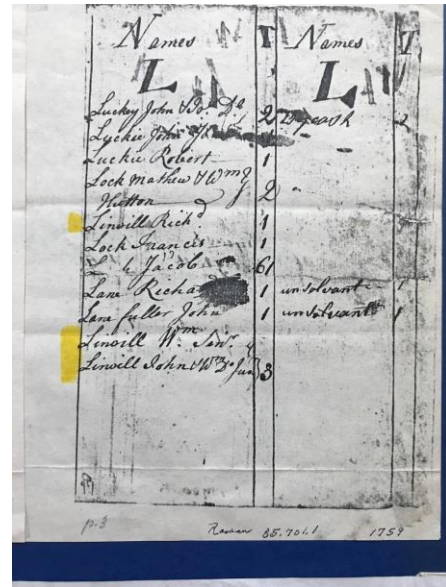 Names T Names T
L L
Luckey John & Do. Do 2
Lyckie John
Luckie Robert 1
Lock Mathew & Wm }
Hutton 2
Linvill Richd 1
Lock Francis 1
Jacob 61
Lane Richard 1 unsolvant 1
Lanefuller John 1 unsolvant 1
Linvill Wm Senr. &
Linvill John & Wm Do Jun 3
p.3 Rowan 85.701.1 1759